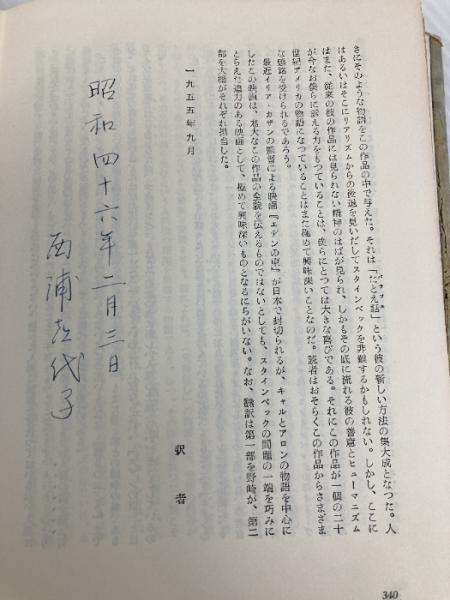 さにそのような物語をこの作品の中で与えた。それは「たとえ話」という彼の新しい方法の集大成となつた。人
はあるいはそこにリアリズムからの後退を見いだしてスタインベックを非難するかもしれない。しかし、ここに
はまた、従来の彼の作品には見られない精神のはばが見られ、しかもその底に流れる彼の善意とヒューマニズム
が今なお僕らに訴える力をもつていることは、僕らにとつては大きな喜びである。それにこの作品が一個の二十
世紀アメリカの物語になつていることはまた極めて興味深いことなのだ。読者はおそらくこの作品からさまざま
な感銘を受けられるであろう。
最近イリア・カザンの監督による映画『エデンの東』が日本で封切られるが、キャルとアロンの物語を中心に
したこの映画は、厖大なこの作品の全貌を伝えるものではないとしても、スタインベックの問題の一端を巧みに
とらえた迫力のある映画として、極めて興味深いものとなるにちがいない。なお、翻訳は第一部を野崎が、第二
部を大橋がそれぞれ担当した。
一九五五年九月
訳者
昭和四十六年二月三日
西浦代子
340